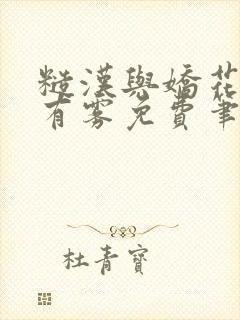 糙漢與嬌花
有霧免費筆
杜青寶